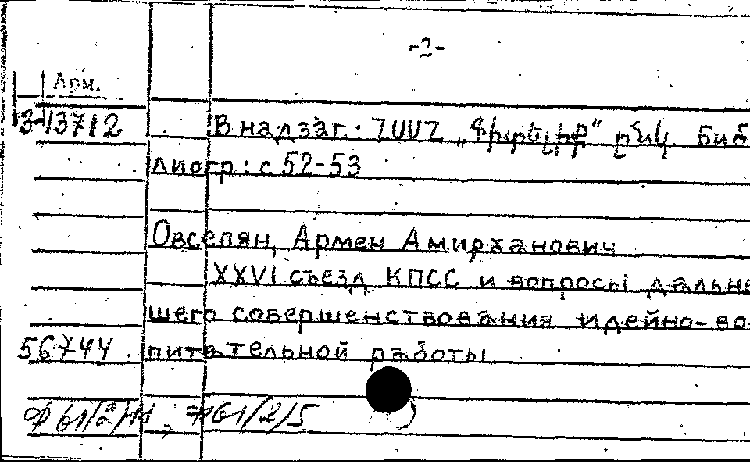 -2-
Арм.
3-13712 В надзаг.: ՀՍՍՀ „Գիտելիք“ ընկ. Биб
лиогр: с 52-53
Овсепян, Армен Амирханович
XXVI съезд КПСС и вопросы дальне
шего совершенствования идейно-во
56744 питательной работы
Ф61/2/11, Ф61/2/5